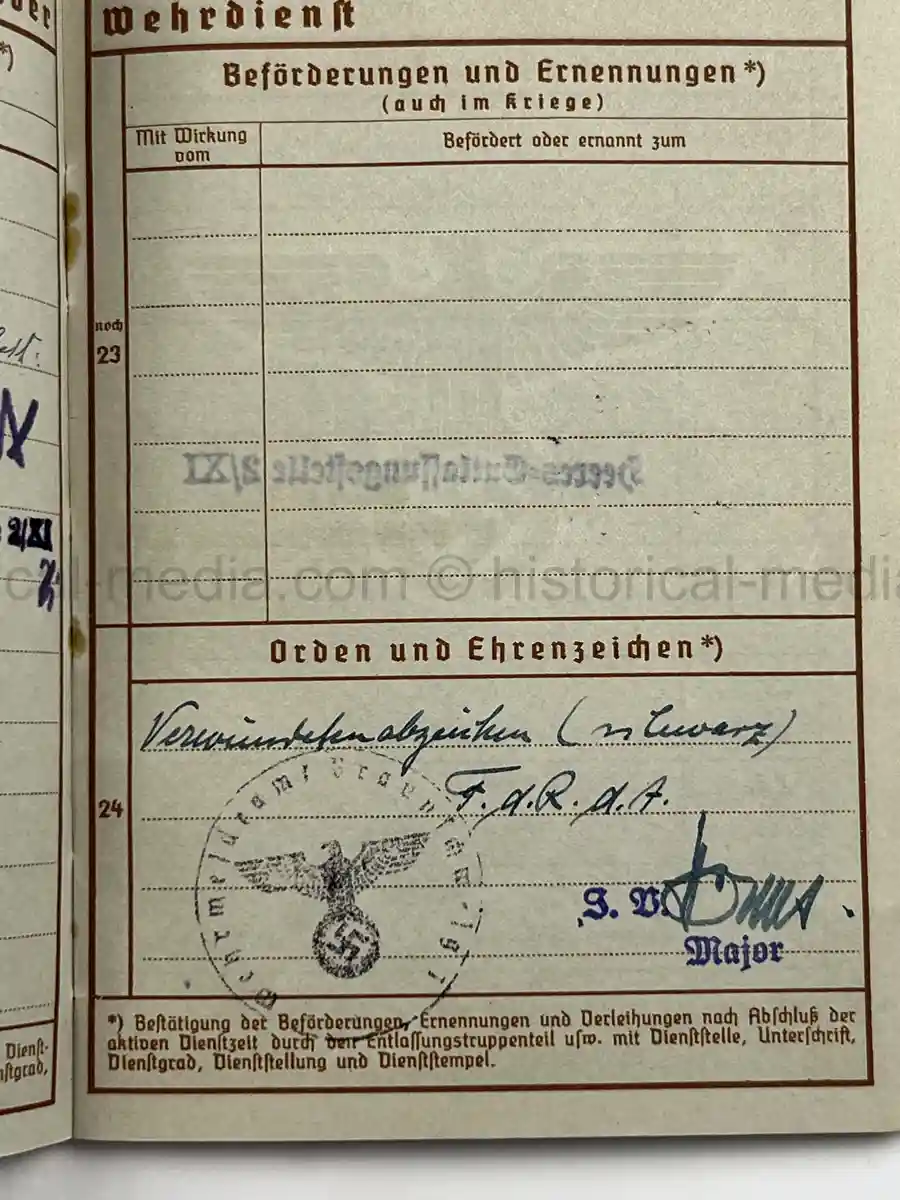 Wehrdienst
Beförderungen und Ernennungen *)
(auch im Kriege)
Mit Wirkung
vom
Befördert oder ernannt zum
noch
23
Heeres-Entlassungsstelle 2/XI
2/XI
historical-media.com © historical-media
Orden und Ehrenzeichen *)
24
Verwundetenabzeichen (schwarz)
F. d. R. d. A.
Wehrmeldeamt
I. V.
Major
*) Bestätigung der Beförderungen, Ernennungen und Verleihungen nach Abschluß der
aktiven Dienstzeit durch den Entlassungstruppenteil usw. mit Dienststelle, Unterschrift,
Dienstgrad, Dienststellung und Dienststempel.
Dienst-